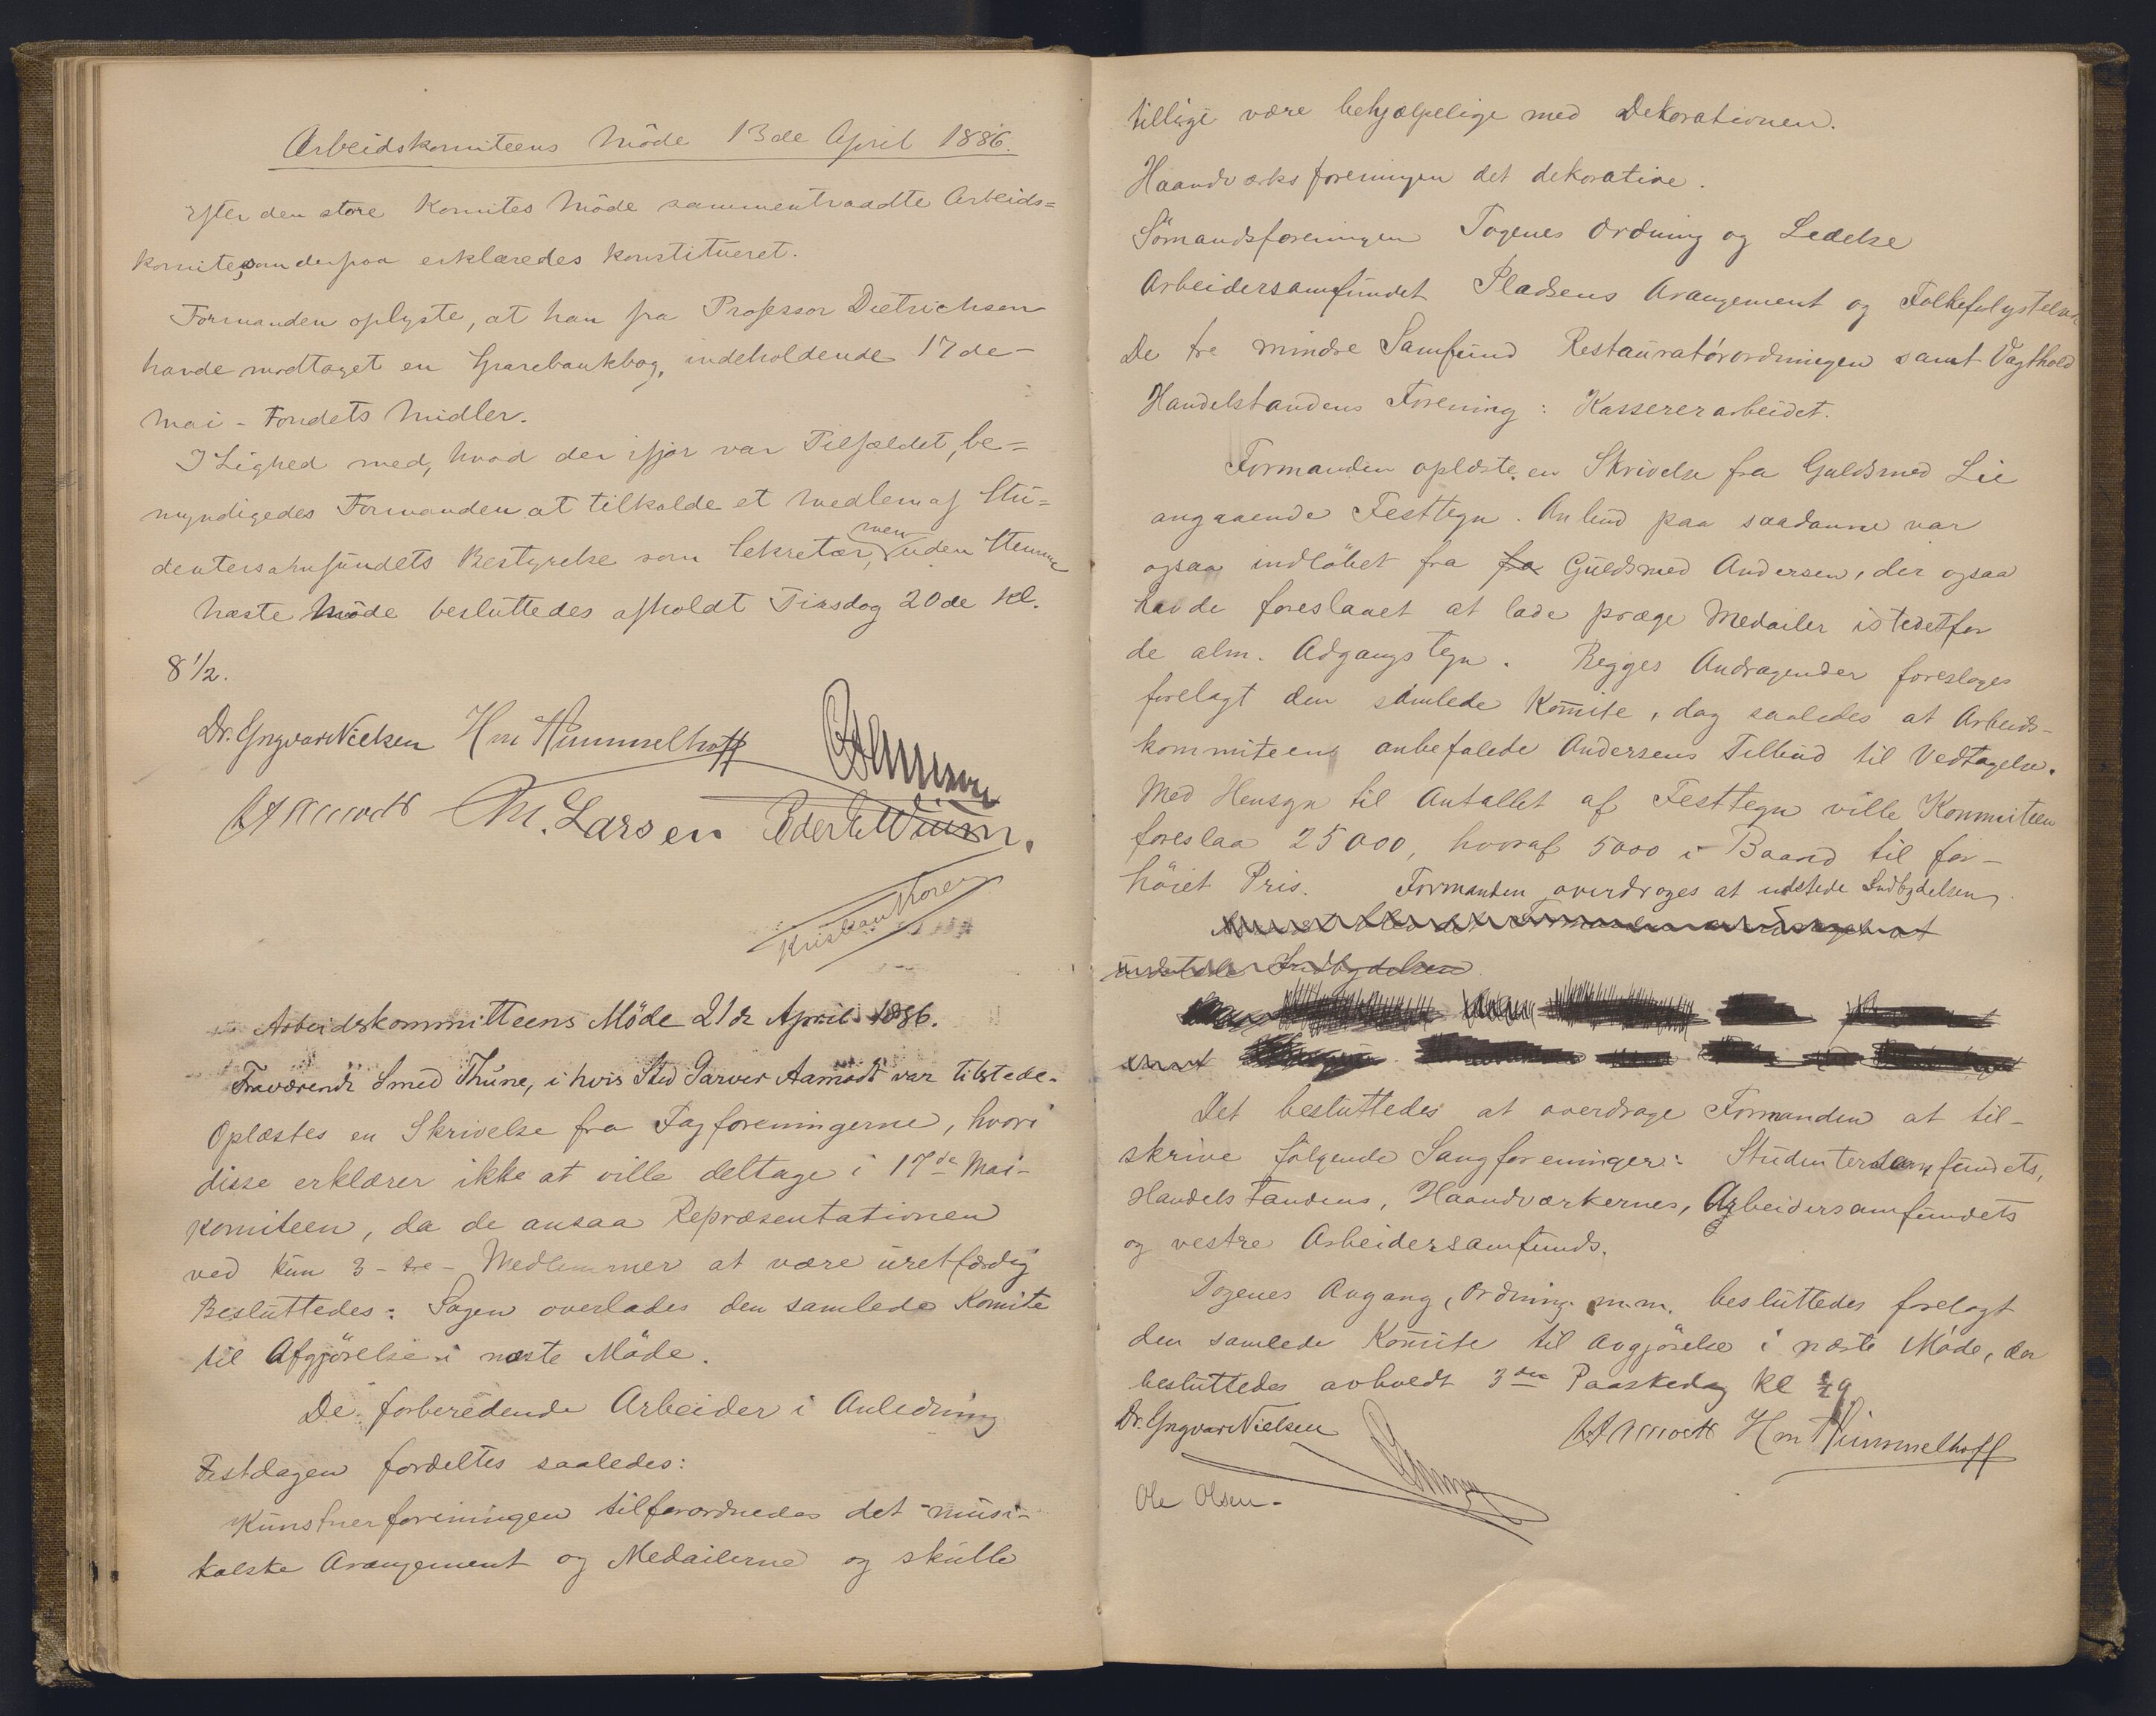 Arbeidskomiteens Möde 13de April 1886.
Efter den store Komites Möde sammentraadte Arbeids=
komite, som derpaa erklæredes konstitueret.
Formanden oplyste, at han fra Professor Dietrichsen
havde modtaget en Sparebankbog, indeholdende 17de-
Mai-Fondets Midler.
I Lighed med, hvad der ifjor var Tilfældet, be=
myndigedes Formanden at tilkalde et Medlem af Stu=
dentersamfundets Bestyrelse som Sekretær, men uden Stemme
Næste Möde besluttedes afholdt Tirsdag 20de Kl.
8 1/2.
Dr. Yngvar Nielsen Hm Hummelhoff
M. Larsen Peder
Kristian Koren
Arbeidskommitteens Möde 21de April 1886.
Fraværende Smed Thune, i hvis Sted Garver Aamodt var tilstede.
Oplæstes en Skrivelse fra Fagforeningerne, hvori
disse erklærer ikke at ville deltage i 17de Mai-
komiteen, da de ansaa Repræsentationen
ved kun 3-tre-Medlemmer at være uretfærdig
Besluttedes: Sagen overlades den samlede Komite
til Afgjörelse i næste Möde.
De forberedende Arbeider i Anledning
Festdagen fordeltes saaledes:
Kunstnerforeningen tilforordnedes det musi-
kalske Arangement og Medailerne og skulle
tillige være behjælpelige med Dekorationen.
Haandværksforeningen det dekorative.
Sömandsforeningen Togenes Ordning og Ledelse
Arbeidersamfundet Pladsens Arangement og Folkeforlystelser
De tre mindre Samfund Restauratörordningen samt Vagthold
Handelstandens Forening: Kassererarbeidet.
Formanden oplæste en Skrivelse fra Guldsmed Lie
angaaende Festtegn. Anbud paa saadanne var
ogsaa indlöbet fra fra Guldsmed Andersen, der ogsaa
havde foreslaaet at lade præge Medailer istedetfor
de alm. Adgangstegn. Begges Andragender foresloges
forelagt den samlede Komite, dog saaledes at Arbeids-
kommiteens anbefalede Andersens Tilbud til Vedtagelse.
Med Hensyn til Antallet af Festtegn ville Kommiteen
foreslaa 25000, hvoraf 5000 i Baand til for-
höiet Pris. Formanden overdroges at udstede Indbydelsen.
Formanden at
udstede Indbydelsen
Det besluttedes at overdrage Formanden at til-
skrive fölgende Sangforeninger: Studentersamfundets,
Handelstandens, Haandværkernes, Arbeidersamfundets
og vestre Arbeidersamfunds.
Togenes Avgang, Ordning m.m. besluttedes forelagt
den samlede Komite til avgjörelse i næste Möde, der
besluttedes avholdt 3die Paaskedag Kl ½9
Dr. Yngvar Nielsen Hm Hummelhoff
Ole Olsen.